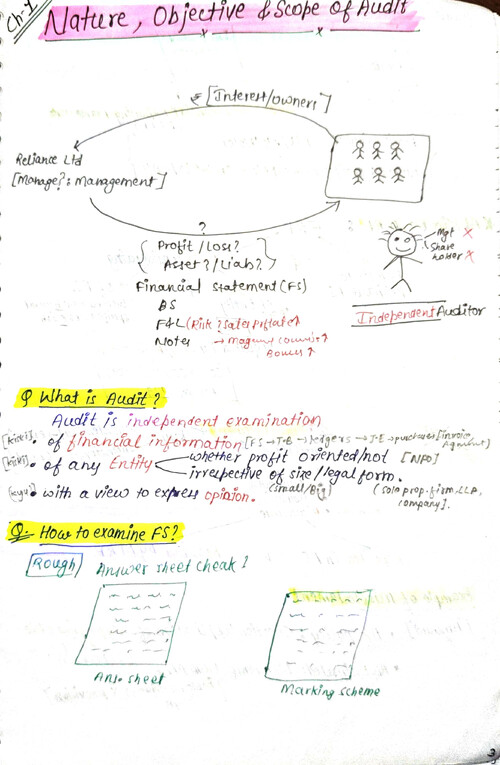 Ch-1
Nature, Objective & Scope of Audit
₹ [Interest/owners]
Reliance Ltd
[Manage? : Management]
?
Profit/Loss?
Asset?/Liab?
Financial Statement (FS)
BS
P&L (Risk? Sales Inflate↑
Notes → Magmt Commis↑
Bonus↑
Mgt ×
Share
holder ×
Independent Auditor
Q What is Audit?
Audit is independent examination
[kiski] • of financial information [FS → T.B → ledgers → J.E → purchases [invoice, Agrment]
[kiski] • of any Entity
whether profit oriented/not [NPO]
irrespective of size/legal form.
(small/Big) (sole prop. firm, LLP, company].
[kyu] • with a view to express opinion.
Q. How to examine FS?
Rough Answer sheet cheak?
Ans. sheet
Marking scheme
3